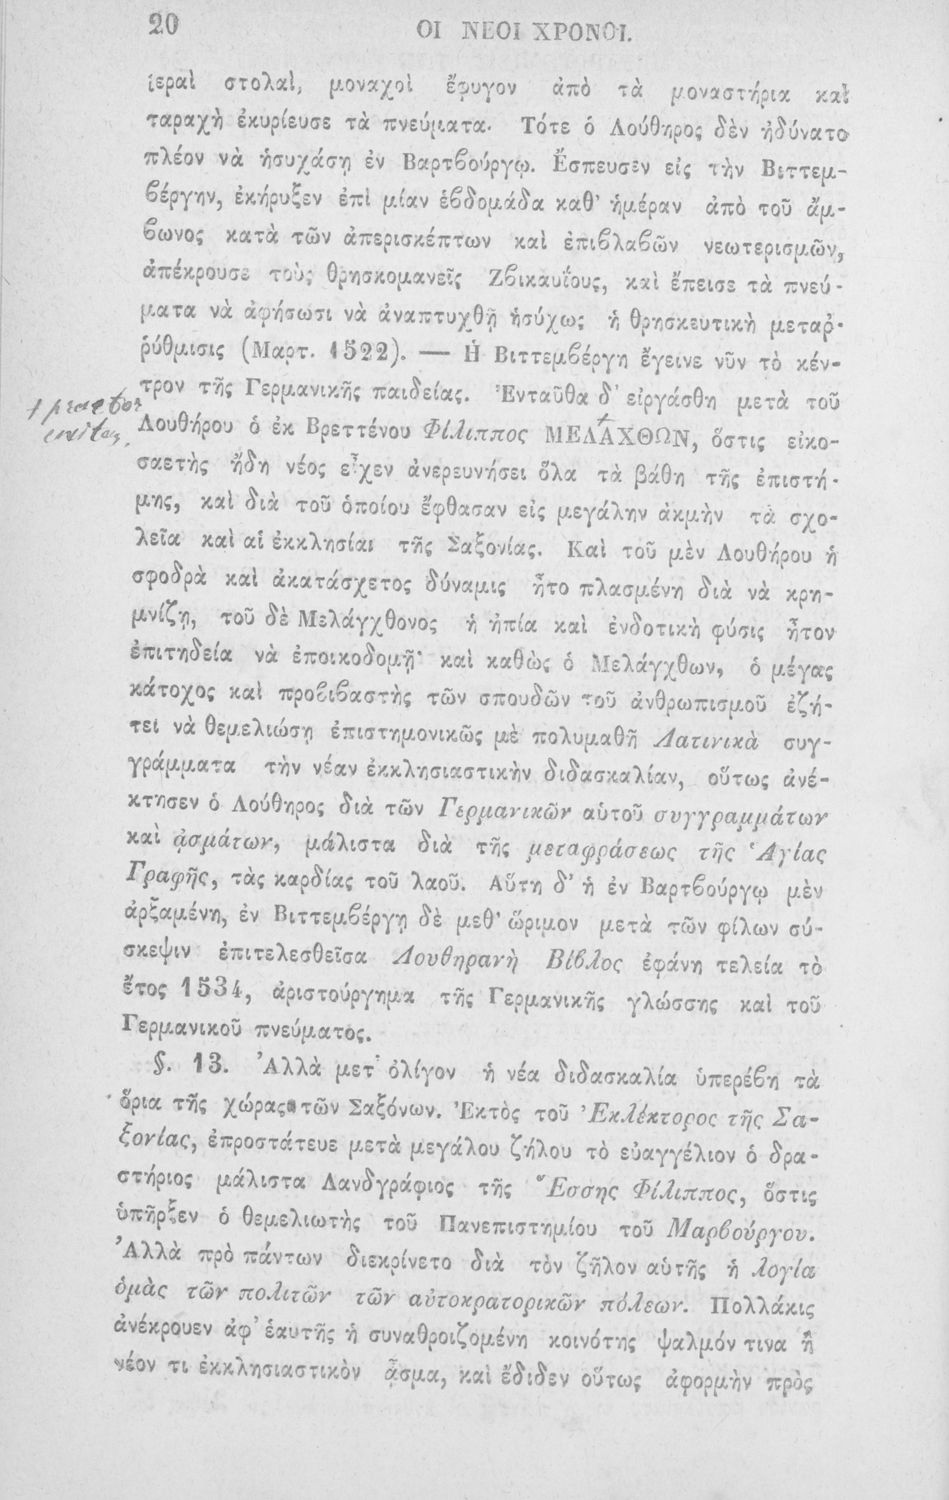 20 ΟΙ ΝΕΟΙ ΧΡΟΝΟΙ.
ἱεραὶ στολαὶ, μοναχοὶ ἔφυγον ἀπὸ τὰ μοναστήρια καὶ
ταραχὴ ἐκυρίευσε τὰ πνεύματα. Τότε ὁ Λούθηρος δὲν ἠδύνατο
πλέον νὰ ἡσυχάσῃ ἐν Βαρτβούργῳ. Ἔσπευσεν εἰς τὴν Βιττεμ-
βέργην, ἐκήρυξεν ἐπὶ μίαν ἑβδομάδα καθ' ἡμέραν ἀπὸ τοῦ ἄμ-
βωνος κατὰ τῶν ἀπερισκέπτων καὶ ἐπιβλαβῶν νεωτερισμῶν,
ἀπέκρουσε τοὺς θρησκομανεῖς Ζβικαυΐους, καὶ ἔπεισε τὰ πνεύ-
ματα νὰ ἀφήσωσι νὰ ἀναπτυχθῇ ἡσύχως ἡ θρησκευτικὴ μεταῤ-
ῥύθμισις (Μαρτ. 1522). — Ἡ Βιττεμβέργη ἔγεινε νῦν τὸ κέν-
τρον τῆς Γερμανικῆς παιδείας. Ἐνταῦθα δ' εἰργάσθη μετὰ τοῦ
Λουθήρου ὁ ἐκ Βρεττένου Φίλιππος ΜΕΛΑΧΘΩΝ, ὅστις εἰκο-
σαετὴς ἤδη νέος εἶχεν ἀνερευνήσει ὅλα τὰ βάθη τῆς ἐπιστή-
μης, καὶ διὰ τοῦ ὁποίου ἔφθασαν εἰς μεγάλην ἀκμὴν τὰ σχο-
λεῖα καὶ αἱ ἐκκλησίαι τῆς Σαξονίας. Καὶ τοῦ μὲν Λουθήρου ἡ
σφοδρὰ καὶ ἀκατάσχετος δύναμις ἦτο πλασμένη διὰ νὰ κρη-
μνίζῃ, τοῦ δὲ Μελάγχθονος ἡ ἠπία καὶ ἐνδοτικὴ φύσις ἦτον
ἐπιτηδεία νὰ ἐποικοδομῇ· καὶ καθὼς ὁ Μελάγχθων, ὁ μέγας
κάτοχος καὶ προβιβαστὴς τῶν σπουδῶν τοῦ ἀνθρωπισμοῦ ἐζή-
τει νὰ θεμελιώσῃ ἐπιστημονικῶς μὲ πολυμαθῆ Λατινικὰ συγ-
γράμματα τὴν νέαν ἐκκλησιαστικὴν διδασκαλίαν, οὕτως ἀνέ-
κτησεν ὁ Λούθηρος διὰ τῶν Γερμανικῶν αὑτοῦ συγγραμμάτων
καὶ ᾀσμάτων, μάλιστα διὰ τῆς μεταφράσεως τῆς Ἁγίας
Γραφῆς, τὰς καρδίας τοῦ λαοῦ. Αὕτη δ' ἡ ἐν Βαρτβούργῳ μὲν
ἀρξαμένη, ἐν Βιττεμβέργῃ δὲ μεθ' ὥριμον μετὰ τῶν φίλων σύ-
σκεψιν ἐπιτελεσθεῖσα Λουθηρανὴ Βίβλος ἐφάνη τελεία τὸ
ἔτος 1534, ἀριστούργημα τῆς Γερμανικῆς γλώσσης καὶ τοῦ
Γερμανικοῦ πνεύματος.
§. 13. Ἀλλὰ μετ' ὀλίγον ἡ νέα διδασκαλία ὑπερέβη τὰ
ὅρια τῆς χώρας τῶν Σαξόνων. Ἐκτὸς τοῦ Ἐκλέκτορος τῆς Σα-
ξονίας, ἐπροστάτευε μετὰ μεγάλου ζήλου τὸ εὐαγγέλιον ὁ δρα-
στήριος μάλιστα Λανδγράφιος τῆς Ἔσσης Φίλιππος, ὅστις
ὑπῆρξεν ὁ θεμελιωτὴς τοῦ Πανεπιστημίου τοῦ Μαρβούργου.
Ἀλλὰ πρὸ πάντων διεκρίνετο διὰ τὸν ζῆλον αὑτῆς ἡ λογία
ὁμὰς τῶν πολιτῶν τῶν αὐτοκρατορικῶν πόλεων. Πολλάκις
ἀνέκρουεν ἀφ' ἑαυτῆς ἡ συναθροιζομένη κοινότης ψαλμόν τινα ἢ
νέον τι ἐκκλησιαστικὸν ᾆσμα, καὶ ἔδιδεν οὕτως ἀφορμὴν πρὸς